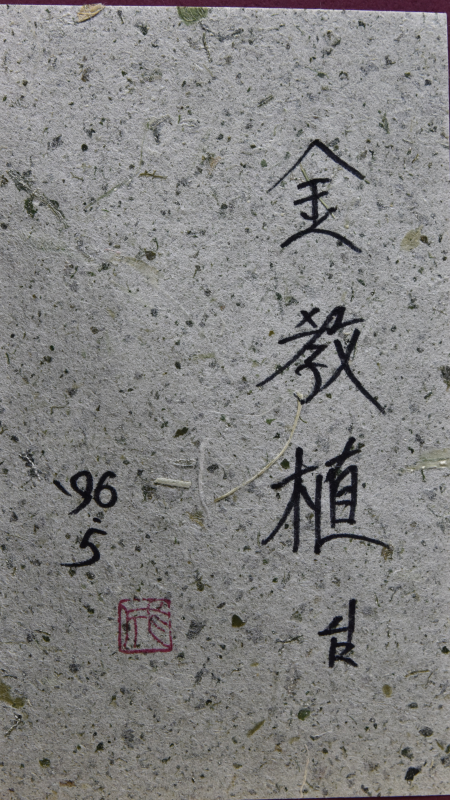 金敎植
'96.5